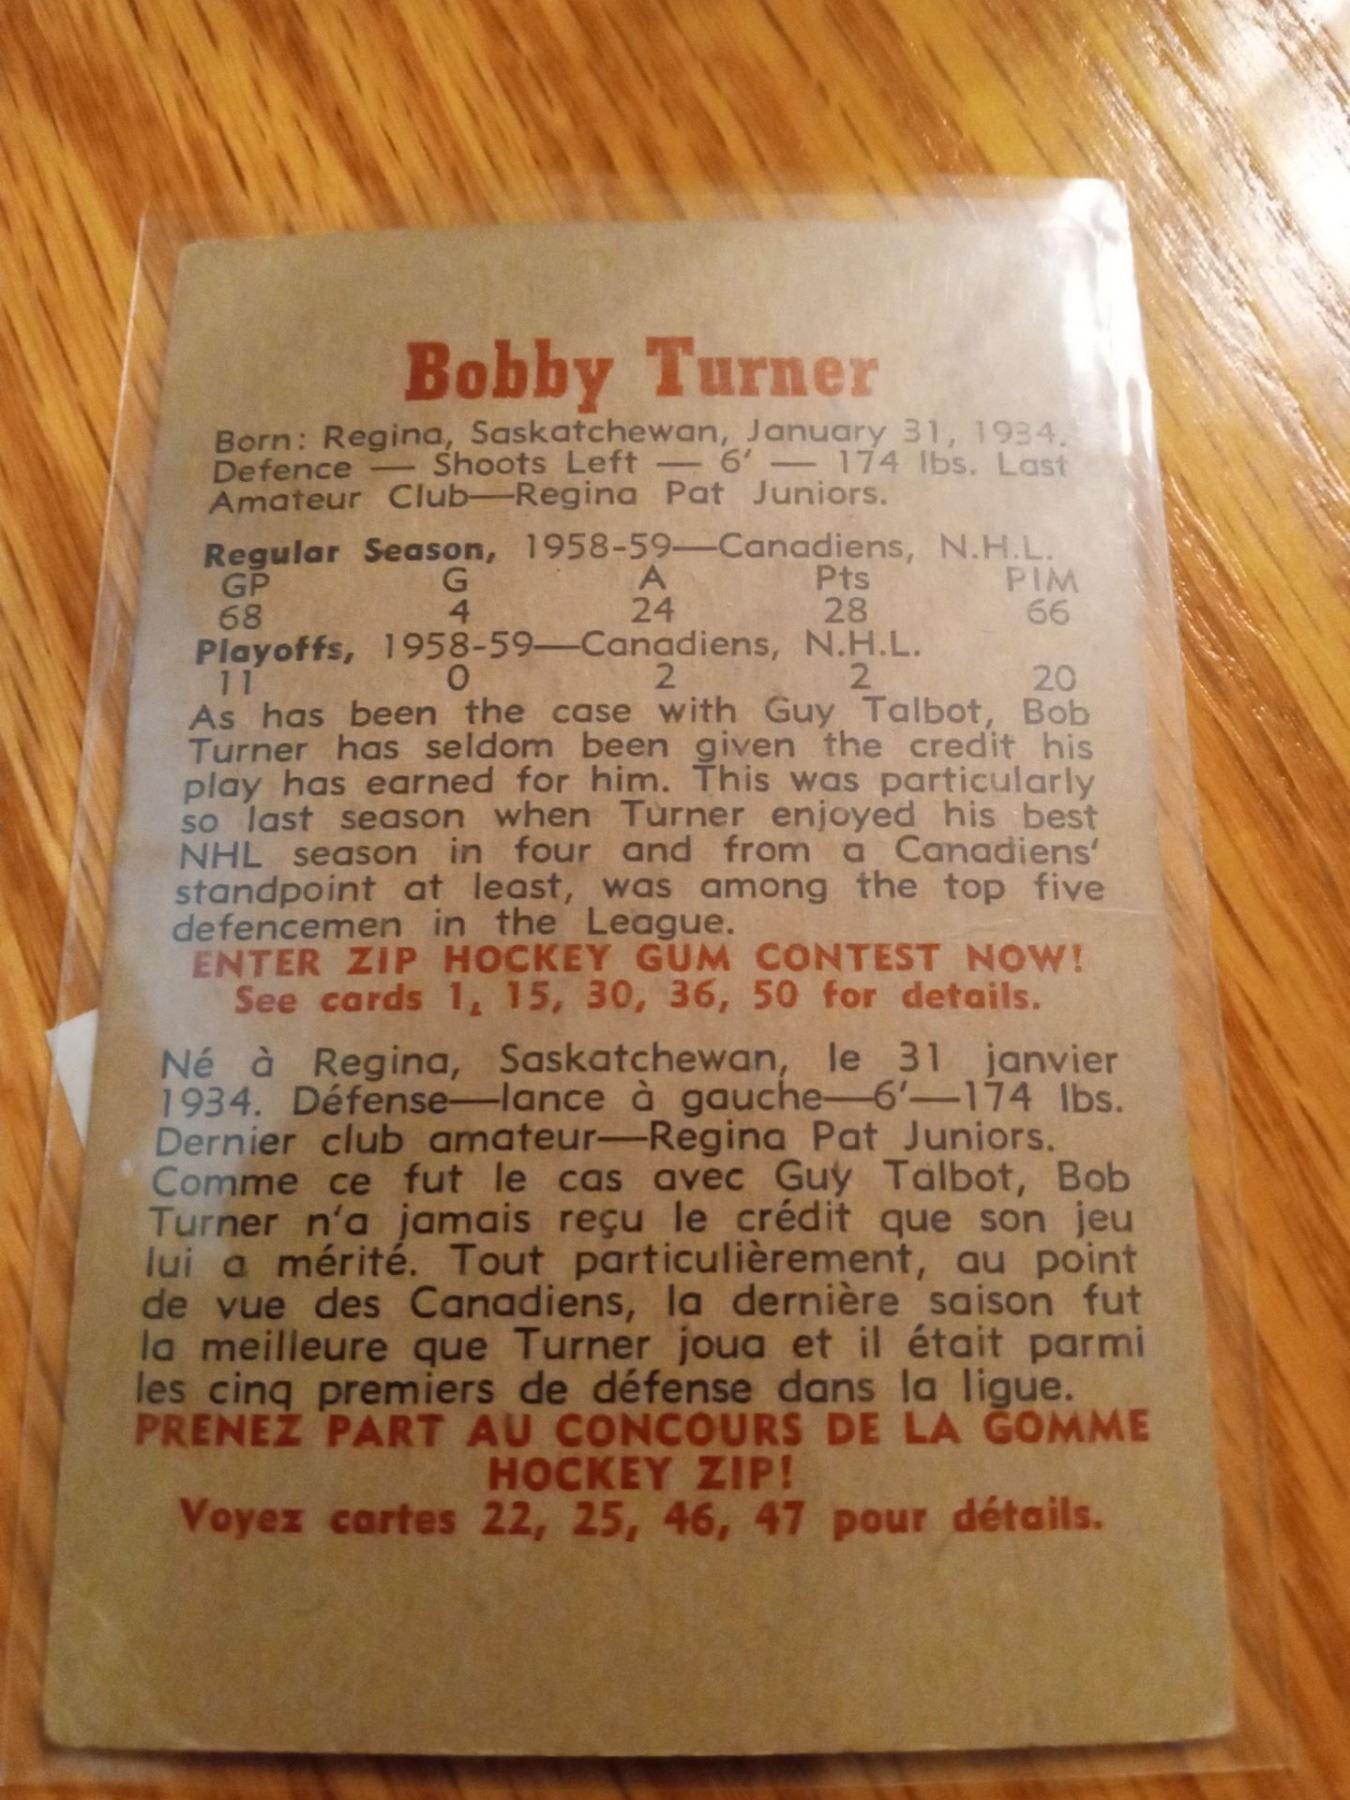 Bobby Turner
Born: Regina, Saskatchewan, January 31, 1934.
Defence — Shoots Left — 6' — 174 lbs. Last
Amateur Club—Regina Pat Juniors.
Regular Season, 1958-59—Canadiens, N.H.L.
GP G A Pts PIM
68 4 24 28 66
Playoffs, 1958-59—Canadiens, N.H.L.
11 0 2 2 20
As has been the case with Guy Talbot, Bob
Turner has seldom been given the credit his
play has earned for him. This was particularly
so last season when Turner enjoyed his best
NHL season in four and from a Canadiens'
standpoint at least, was among the top five
defencemen in the League.
ENTER ZIP HOCKEY GUM CONTEST NOW!
See cards 1, 15, 30, 36, 50 for details.
Né à Regina, Saskatchewan, le 31 janvier
1934. Défense—lance à gauche—6'—174 lbs.
Dernier club amateur—Regina Pat Juniors.
Comme ce fut le cas avec Guy Talbot, Bob
Turner n'a jamais reçu le crédit que son jeu
lui a mérité. Tout particulièrement, au point
de vue des Canadiens, la dernière saison fut
la meilleure que Turner joua et il était parmi
les cinq premiers de défense dans la ligue.
PRENEZ PART AU CONCOURS DE LA GOMME
HOCKEY ZIP!
Voyez cartes 22, 25, 46, 47 pour détails.